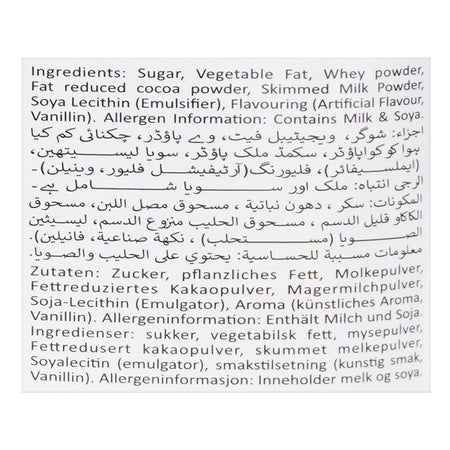 Ingredients: Sugar, Vegetable Fat, Whey powder,
Fat reduced cocoa powder, Skimmed Milk Powder,
Soya Lecithin (Emulsifier), Flavouring (Artificial Flavour,
Vanillin). Allergen Information: Contains Milk & Soya.
اجزاء: شوگر، ویجیٹیبل فیٹ، وے پاؤڈر، چکنائی کم کیا
ہوا کوکوا پاؤڈر، سکمڈ ملک پاؤڈر، سویا لیسیتھین،
(ایملسیفائر)، فلیورنگ (آرٹیفیشل فلیور، وینیلن)۔
الرجی انتباہ: ملک اور سویا شامل ہے۔
المكونات: سكر، دهون نباتية، مسحوق مصل اللبن، مسحوق
الكاكو قليل الدسم، مسحوق الحليب منزوع الدسم، ليسيثين
الصويا (مستحلب)، نكهة صناعية، فانيلين).
معلومات مسببة للحساسية: يحتوي على الحليب والصويا.
Zutaten: Zucker, pflanzliches Fett, Molkepulver,
Fettreduziertes Kakaopulver, Magermilchpulver,
Soja-Lecithin (Emulgator), Aroma (künstliches Aroma,
Vanillin). Allergeninformation: Enthält Milch und Soja.
Ingredienser: sukker, vegetabilsk fett, mysepulver,
Fettredusert kakaopulver, skummet melkepulver,
Soyalecitin (emulgator), smakstilsetning (kunstig smak,
Vanillin). Allergeninformasjon: Inneholder melk og soya.